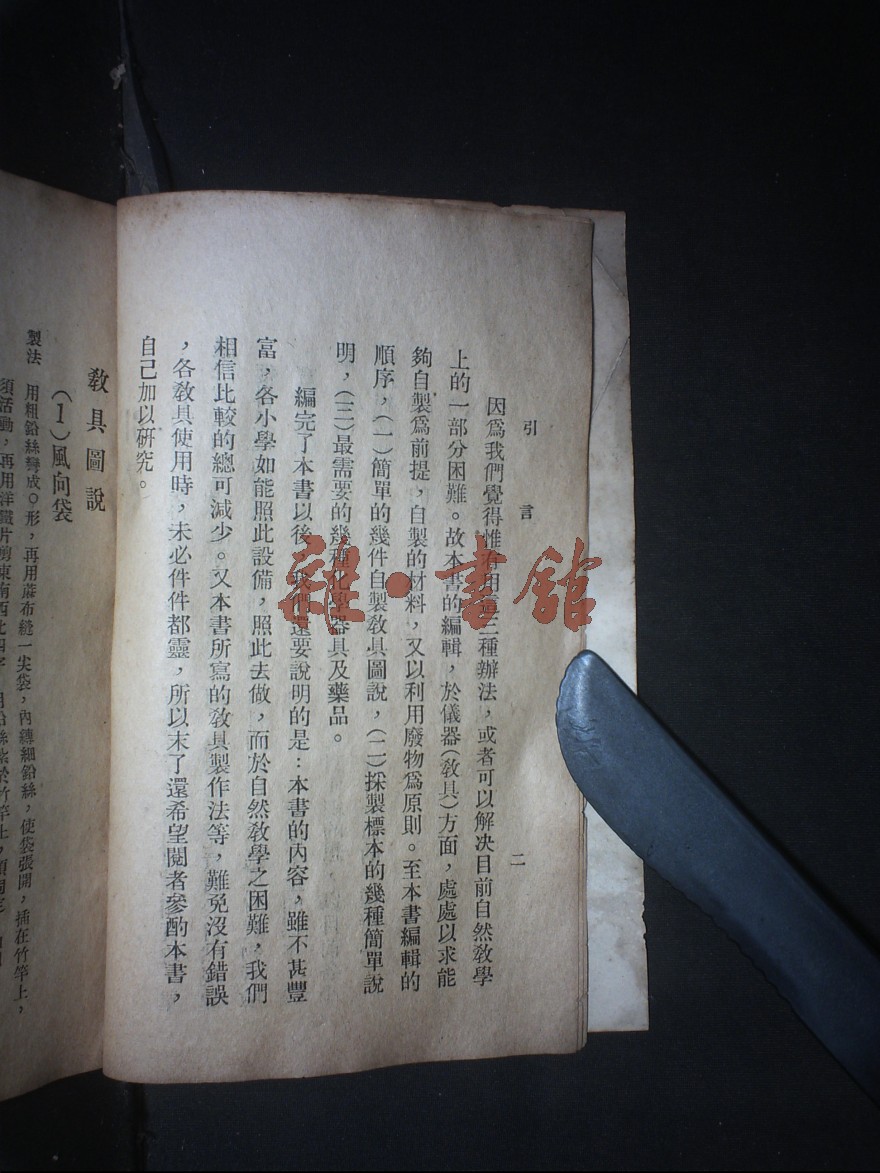 引言
二
因爲我們覺得惟有用這三種辦法，或者可以解決目前自然敎學
上的一部分困難。故本書的編輯，於儀器(敎具)方面，處處以求能
夠自製爲前提，自製的材料，又以利用廢物爲原則。至本書編輯的
順序，(一)簡單的幾件自製敎具圖說，(二)採製標本的幾種簡單說
明，(三)最需要的幾種化學器具及藥品。
編完了本書以後，我們還要說明的是：本書的內容，雖不甚豐
富，各小學如能照此設備，照此去做，而於自然敎學之困難，我們
相信比較的總可減少。又本書所寫的敎具製作法等，難免沒有錯誤
，各敎具使用時，未必件件都靈，所以末了還希望閱者參酌本書，
自己加以硏究。
敎具圖說
(1)風向袋
製法 用粗鉛絲彎成○形，再用蔴布縫一尖袋，內縳細鉛絲，使袋張開，插在竹竿上，
須活動，再用洋鐵片剪東南西北四字
雜·書館